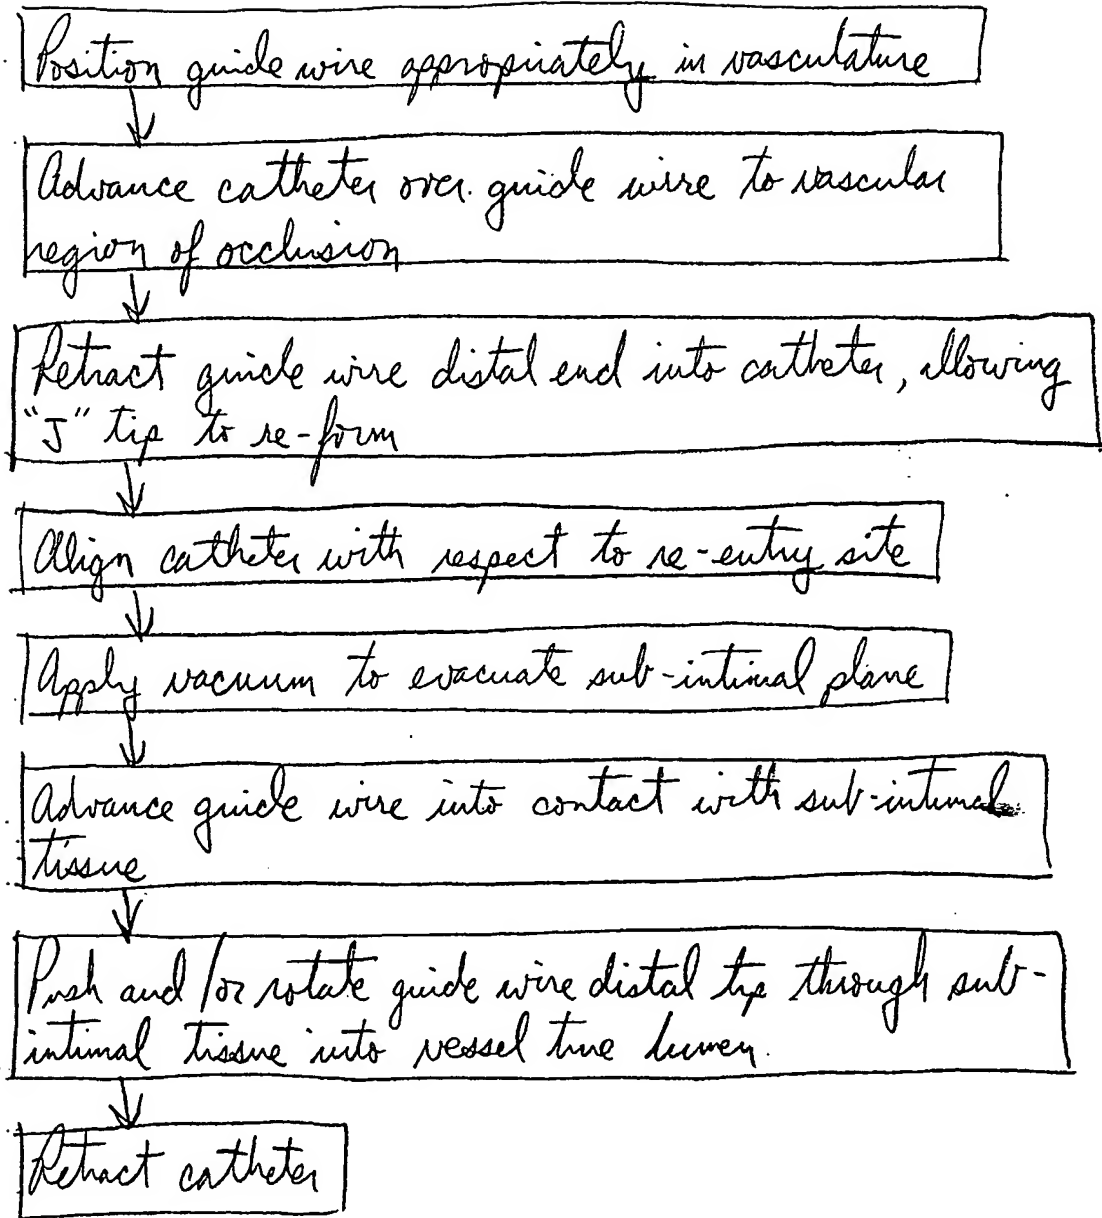 Position guide wire appropriately in vasculature
Advance catheter over guide wire to vascular
region of occlusion
Retract guide wire distal end into catheter, allowing
"J" tip to re-form
Align catheter with respect to re-entry site
Apply vacuum to evacuate sub-intimal plane
Advance guide wire into contact with sub-intimal
tissue
Push and/or rotate guide wire distal tip through sub-
intimal tissue into vessel true lumen.
Retract catheter